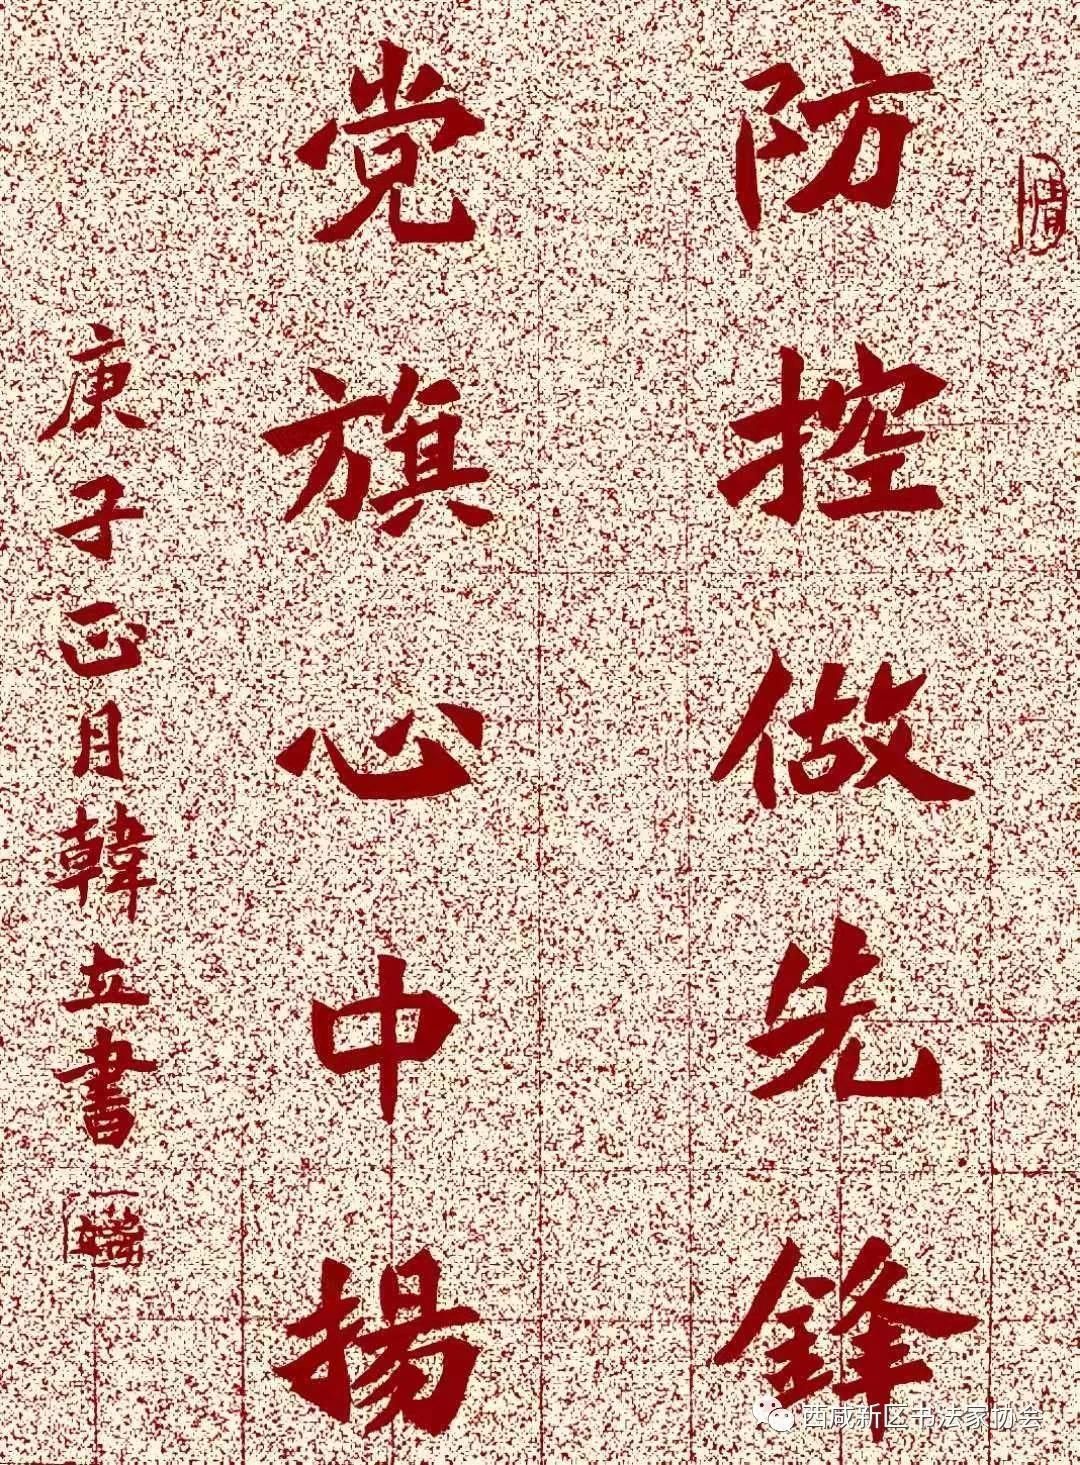 防控做先鋒
党旗心中揚
庚子正月韓立書
西咸新区书法家协会